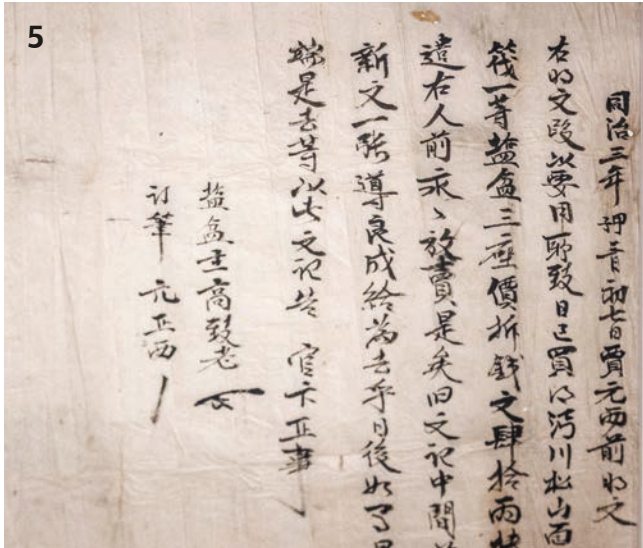 5
同治三年初七日賈元西前明文
右明文段以要用所致自己買得沔川松山面
筏一等塩盆三座價折錢文肆拾兩
遣右人前永〻放賣是矣旧文記中間
新文一張導良成給爲去乎日後如有
端是去等以此文記告 官卞正事
塩盆主高致老
訂筆 元正西